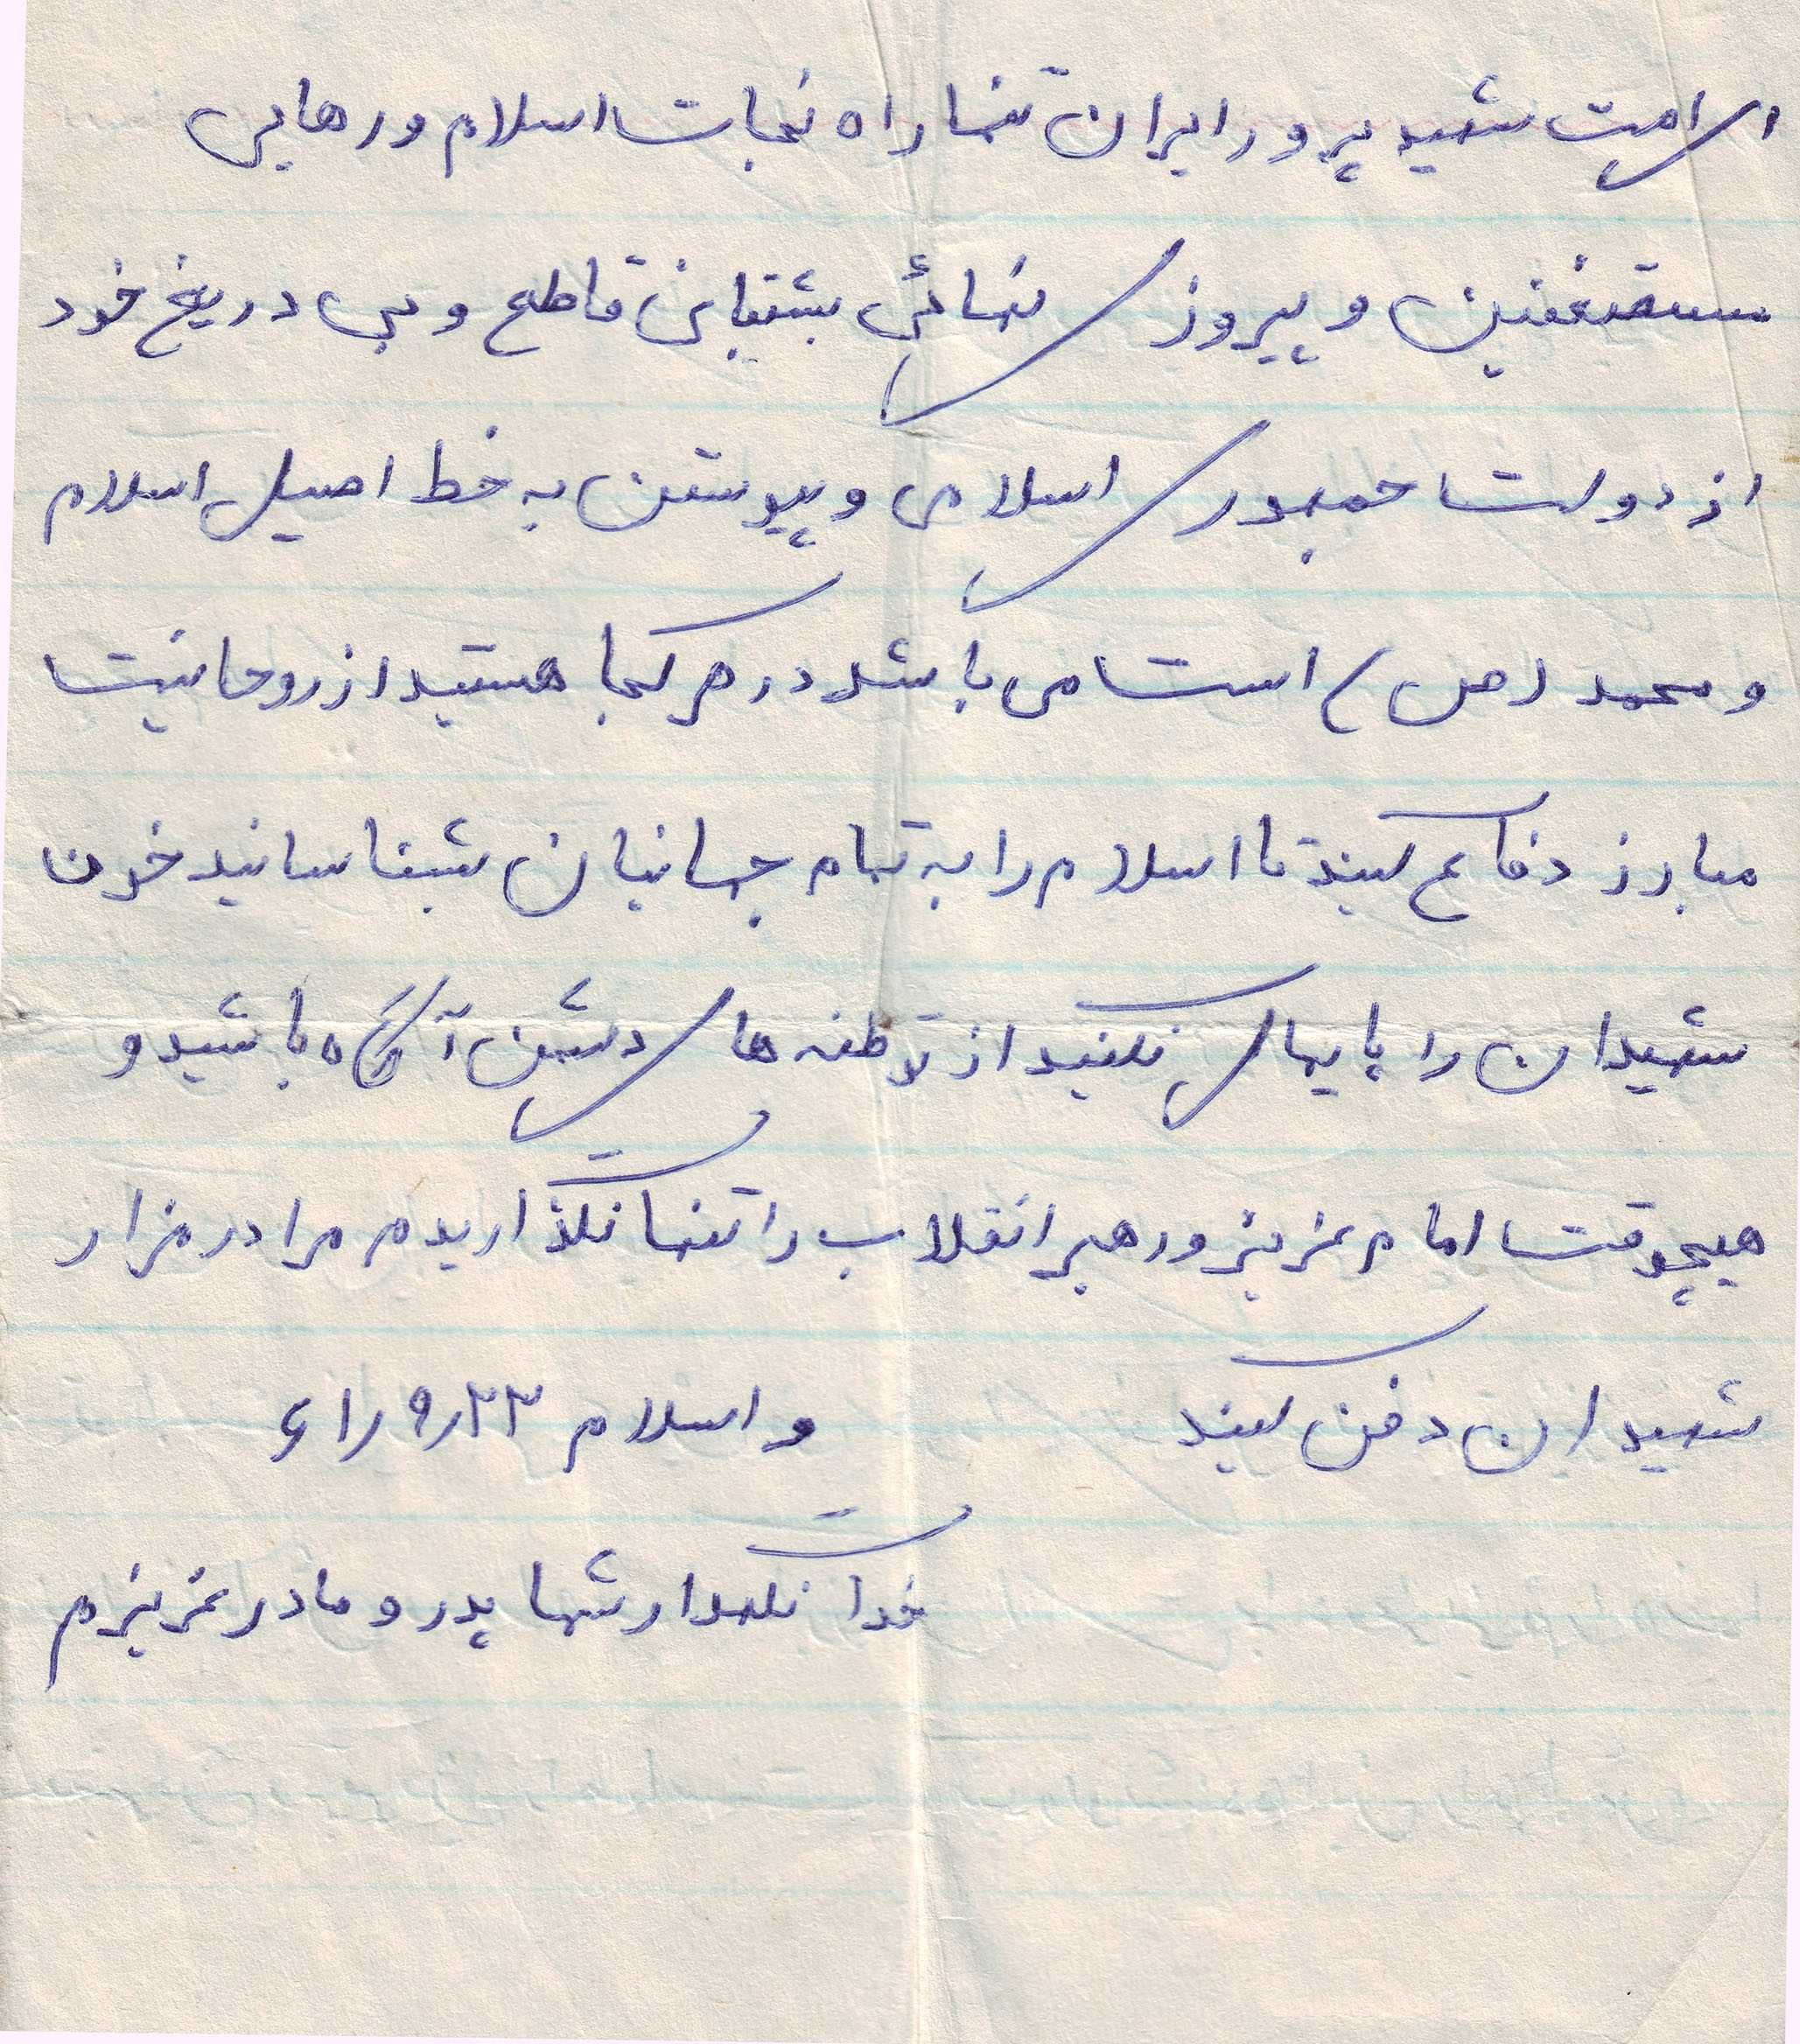 ای امت شهید پرور ایران تنها راه نجات اسلام و رهایی
مستضعفین و پیروزی نهائی پشتیبانی قاطع و بی دریغ خود
از دولت جمهوری اسلامی و پیوستن به خط اصیل اسلام
و محمد (ص) است می باشد در هر کجا هستید از روحانیت
مبارز دفاع کنید تا اسلام را به تمام جهانیان بشناسانید خون
شهیدان را پایمال نکنید از توطئه های دشمن آگاه باشید و
هیچوقت امام عزیز و رهبر انقلاب را تنها نگذارید مرا در مزار
شهیدان دفن کنید والسلام ۶۱/۹/۲۳
خدا نگهدار شما پدر و مادر عزیزم